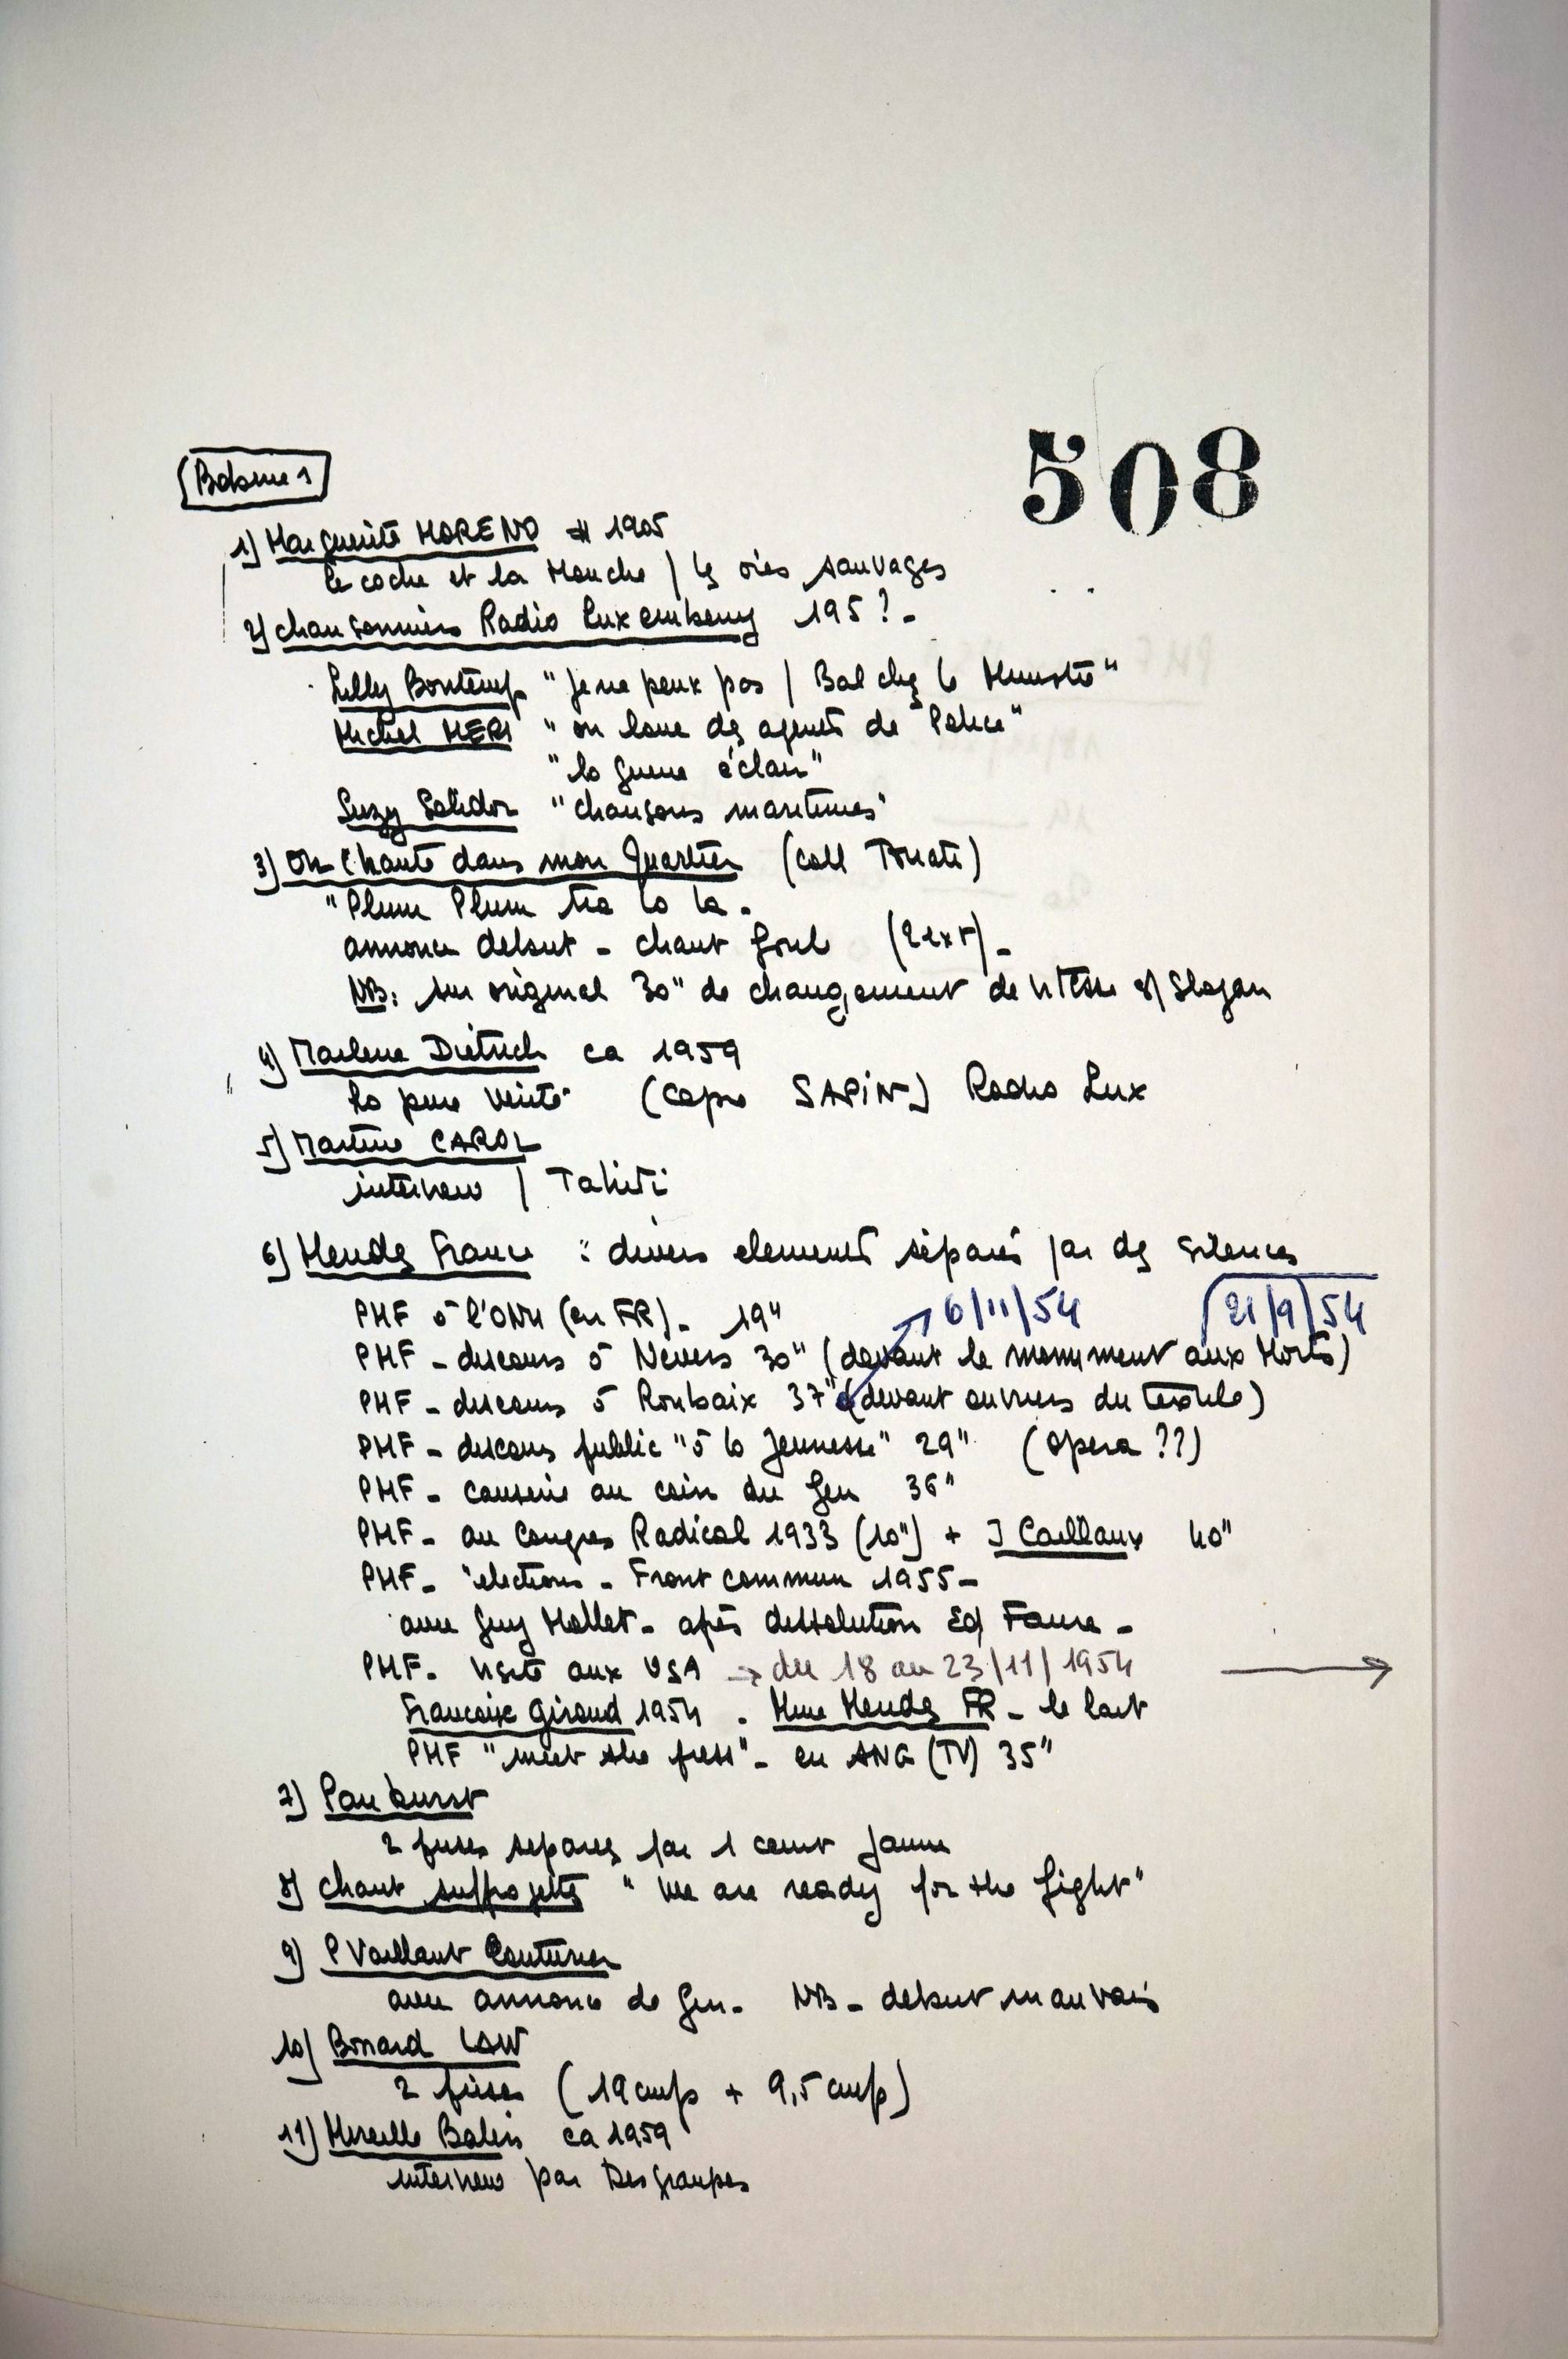 508
Bobine 1
1) Marguerite MORENO # 1905
le coche et la Mouche / les oies sauvages
2) chansonniers Radio Luxembourg 195? -
Lilly Bontemp "je ne peux pas / Bal chez le Ministre"
Michel MERY "on loue des agents de Police"
"la guerre éclair"
Suzy Solidor "chansons maritimes"
3) On Chante dans mon Quartier (coll Touati)
"Plum Plum tra la la.
annonce debut - chant foule (2 ext) -
NB: sur original 30" de changement de vitesse s/ Slogan
4) Marlene Dietrich ca 1959
la pure verité (copie SAPIN) Radio Lux
5) Martine CAROL
interview / Tahiti
6) Mendes France : divers elements séparés par des silences
PMF à l'ONU (en FR). 19" 6/11/54 21/9/54
PMF - discours à Nevers 30" (devant le monument aux Morts)
PMF - discours à Roubaix 37" (devant ouvriers du textile)
PMF - discours public "à la Jeunesse" 29" (opera ??)
PMF - causerie au coin du feu 36"
PMF - au Congres Radical 1933 (10") + J Caillaux 40"
PMF - elections - Front commun 1955 -
avec Guy Mollet - après dissolution Ed Faure -
PMF - visite aux USA → du 18 au 23/11/1954 →
Francoise Giroud 1954 . Mme Mendes FR - le lait
PMF "meet the press" - en ANG (TV) 35"
7) Pankurst
2 prises separees par 1 court jaune
8) chant suffragettes "We are ready for the fight"
9) P Vaillant Couturier
avec annonce de Gen. NB - debut mauvais
10) Bonard LAW
2 prises (19 cm/s + 9,5 cm/s)
11) Mireille Balin ca 1959
interview par Desgraupes